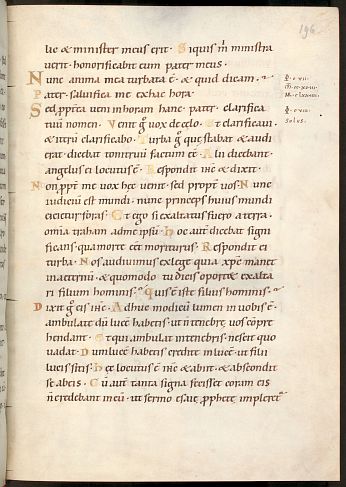 196
lic & minister meus erit. Siquis m ministra
uerit. honorificabit eum pater meus.
Nunc anima mea turbata ē. & quid dicam.
Pater. saluifica me exhac hora.
Sed ppterea ueni inhoram hanc. pater clarifica
tuū nomen. Venit g uox decęlo. Et clarificaui.
& iterū clarificabo. Turba g que stabat & audi
erat. dicebat tonitruū factum eē. Alii dicebant.
angelus ei locutus ē. Respondit ihc & dixit.
Non ppt me uox hęc uenit. sed propt uos. Nunc
iudiciū est mundi. nunc princeps huius mundi
eicietur foras. Et ego si exaltatus fuero aterra.
omia traham adme ipsū. Hoc aut dicebat signi
ficans qua morte eēt moriturus. Respondit ei
turba. Nos audiuimus exlege quia xpc manet
inaeternū. & quomodo tu dicis oportet exalta
ri filium hominis. Quis ē iste filius hominis.
Dixit g eis ihc. Adhuc modicū lumen in uobis ē.
ambulate dū lucē habetis. ut n tenebrę uos cōpre
hendant. Et qui ambulat intenebris. nescit quo
uadat. Dum lucē habetis credite in lucē. ut filii
lucis sitis. Hęc locutus ē ihc & abiit. & abscondit
se abeis. Cū aut tanta signa fecisset coram eis
n credebant in eū. ut sermo esaię pphetę impleret
Solus.